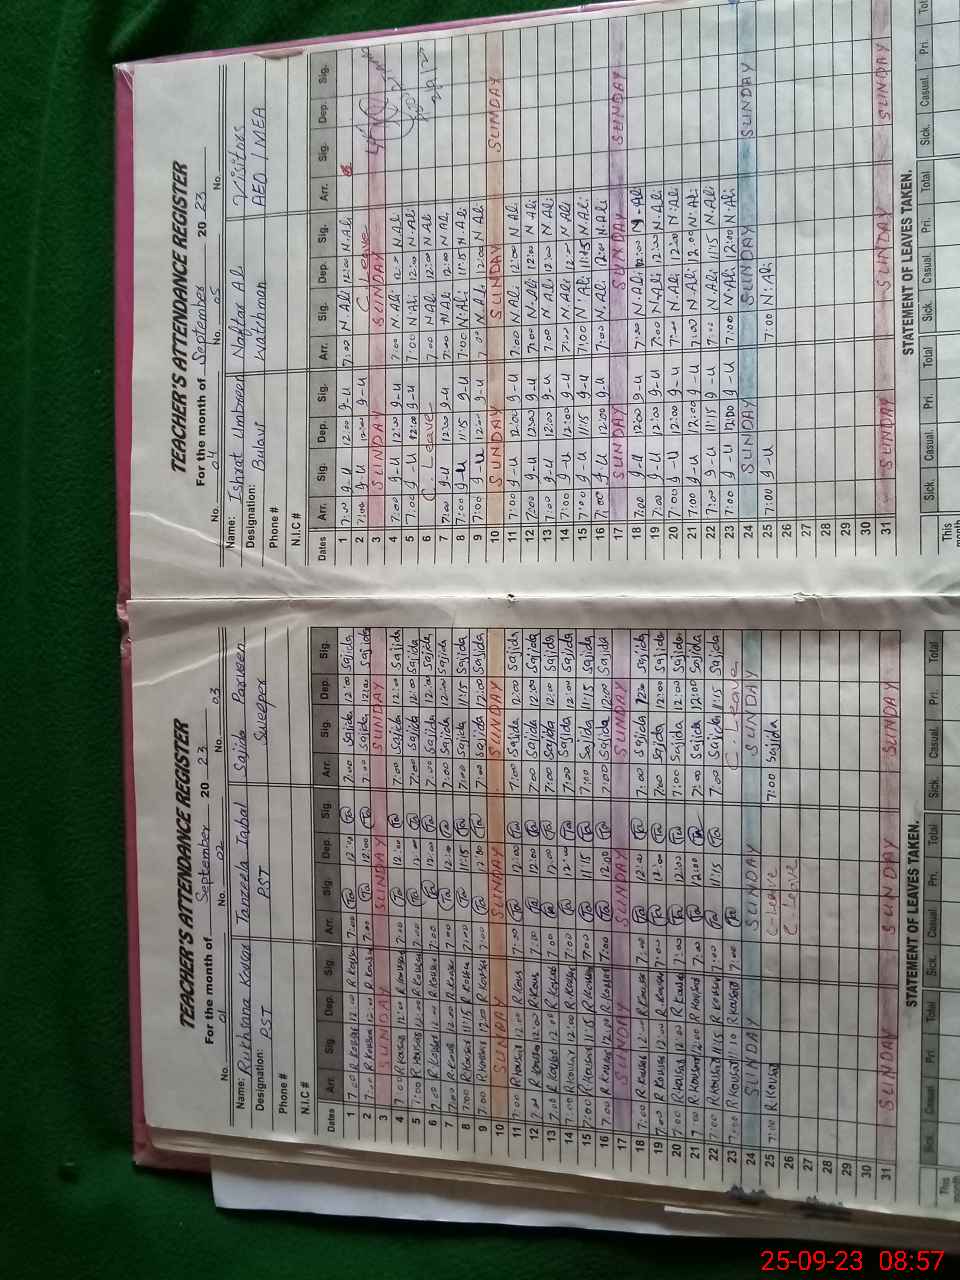 TEACHER'S ATTENDANCE REGISTER
For the month of September 20 23
No. 01 No. 02 No. 03
Name: Rukhsana Kousar Tanzeela Iqbal Sajida Parveen
Designation: PST PST Sweeper
Phone #
N.I.C #
Dates Arr. Sig. Dep. Sig. Arr. Sig. Dep. Sig. Arr. Sig. Dep. Sig.
1 7:00 R Kousar 12:00 R Kousar 7:00 Ta 12:00 Ta 7:00 Sajida 12:00 Sajida
2 7:00 R Kousar 12:00 R Kousar 7:00 Ta 12:00 Ta 7:00 Sajida 12:00 Sajida
3 SUNDAY SUNDAY SUNDAY
4 7:00 R Kousar 12:00 R Kousar 7:00 Ta 12:00 Ta 7:00 Sajida 12:00 Sajida
5 7:00 R Kousar 12:00 R Kousar 7:00 Ta 12:00 Ta 7:00 Sajida 12:00 Sajida
6 7:00 R Kousar 12:00 R Kousar 7:00 Ta 12:00 Ta 7:00 Sajida 12:00 Sajida
7 7:00 R Kousar 12:00 R Kousar 7:00 Ta 12:00 Ta 7:00 Sajida 12:00 Sajida
8 7:00 R Kousar 11:15 R Kousar 7:00 Ta 11:15 Ta 7:00 Sajida 11:15 Sajida
9 7:00 R Kousar 12:00 R Kousar 7:00 Ta 12:00 Ta 7:00 Sajida 12:00 Sajida
10 SUNDAY SUNDAY SUNDAY
11 7:00 R Kousar 12:00 R Kousar 7:00 Ta 12:00 Ta 7:00 Sajida 12:00 Sajida
12 7:00 R Kousar 12:00 R Kousar 7:00 Ta 12:00 Ta 7:00 Sajida 12:00 Sajida
13 7:00 R Kousar 12:00 R Kousar 7:00 Ta 12:00 Ta 7:00 Sajida 12:00 Sajida
14 7:00 R Kousar 12:00 R Kousar 7:00 Ta 12:00 Ta 7:00 Sajida 12:00 Sajida
15 7:00 R Kousar 11:15 R Kousar 7:00 Ta 11:15 Ta 7:00 Sajida 11:15 Sajida
16 7:00 R Kousar 12:00 R Kousar 7:00 Ta 12:00 Ta 7:00 Sajida 12:00 Sajida
17 SUNDAY SUNDAY SUNDAY
18 7:00 R Kousar 12:00 R Kousar 7:00 Ta 12:00 Ta 7:00 Sajida 12:00 Sajida
19 7:00 R Kousar 12:00 R Kousar 7:00 Ta 12:00 Ta 7:00 Sajida 12:00 Sajida
20 7:00 R Kousar 12:00 R Kousar 7:00 Ta 12:00 Ta 7:00 Sajida 12:00 Sajida
21 7:00 R Kousar 12:00 R Kousar 7:00 Ta 12:00 Ta 7:00 Sajida 12:00 Sajida
22 7:00 R Kousar 11:15 R Kousar 7:00 Ta 11:15 Ta 7:00 Sajida 11:15 Sajida
23 7:00 R Kousar 11:10 R Kousar 7:00 Ta C. Leave
24 SUNDAY SUNDAY SUNDAY
25 7:00 R Kousar C-Leave 7:00 Sajida
26 C-Leave
27
28
29
30
31 SUNDAY SUNDAY SUNDAY
STATEMENT OF LEAVES TAKEN.
Sick. Casual Pri. Total Sick. Casual Pri. Total Sick. Casual. Pri. Total
This month
TEACHER'S ATTENDANCE REGISTER
For the month of September 20 23
No. 04 No. 05 No.
Name: Ishrat Umbreen Naffar Ali Visitors
Designation: Bulavi Watchman AEO / MEA
Phone #
N.I.C #
Dates Arr. Sig. Dep. Sig. Arr. Sig. Dep. Sig. Arr. Sig. Dep. Sig.
1 7:00 g-u 12:00 g-u 7:00 N.Ali 12:00 N.Ali
2 7:00 g-u 12:00 g-u C Leave
3 SUNDAY SUNDAY
4 7:00 g-u 12:00 g-u 7:00 N.Ali 12:00 N.Ali
5 7:00 g-u 12:00 g-u 7:00 N.Ali 12:00 N.Ali
6 C. Leave 7:00 N.Ali 12:00 N Ali
7 7:00 g-u 12:00 g-u 7:00 N.Ali 12:00 N Ali
8 7:00 g-u 11:15 g-u 7:00 N.Ali 11:15 N Ali
9 7:00 g-u 12:00 g-u 7:00 N.Ali 12:00 N Ali
10 SUNDAY SUNDAY SUNDAY
11 7:00 g-u 12:00 g-u 7:00 N.Ali 12:00 N Ali
12 7:00 g-u 12:00 g-u 7:00 N.Ali 12:00 N Ali
13 7:00 g-u 12:00 g-u 7:00 N.Ali 12:00 N Ali
14 7:00 g-u 12:00 g-u 7:00 N.Ali 12:00 N Ali
15 7:00 g-u 11:15 g-u 7:00 N.Ali 11:15 N.Ali
16 7:00 g-u 12:00 g-u 7:00 N.Ali 12:00 N.Ali
17 SUNDAY SUNDAY SUNDAY
18 7:00 g-u 12:00 g-u 7:00 N.Ali 12:00 N-Ali
19 7:00 g-u 12:00 g-u 7:00 N.Ali 12:00 N.Ali
20 7:00 g-u 12:00 g-u 7:00 N.Ali 12:00 N.Ali
21 7:00 g-u 12:00 g-u 7:00 N.Ali 12:00 N.Ali
22 7:00 g-u 11:15 g-u 7:00 N.Ali 11:15 N.Ali
23 7:00 g-u 12:00 g-u 7:00 N.Ali 12:00 N.Ali
24 SUNDAY SUNDAY SUNDAY
25 7:00 g-u 7:00 N.Ali
26
27
28
29
30
31 SUNDAY SUNDAY SUNDAY
STATEMENT OF LEAVES TAKEN.
Sick. Casual. Pri. Total Sick. Casual. Pri. Total Sick. Casual. Pri. Tot
This month
25-09-23 08:57